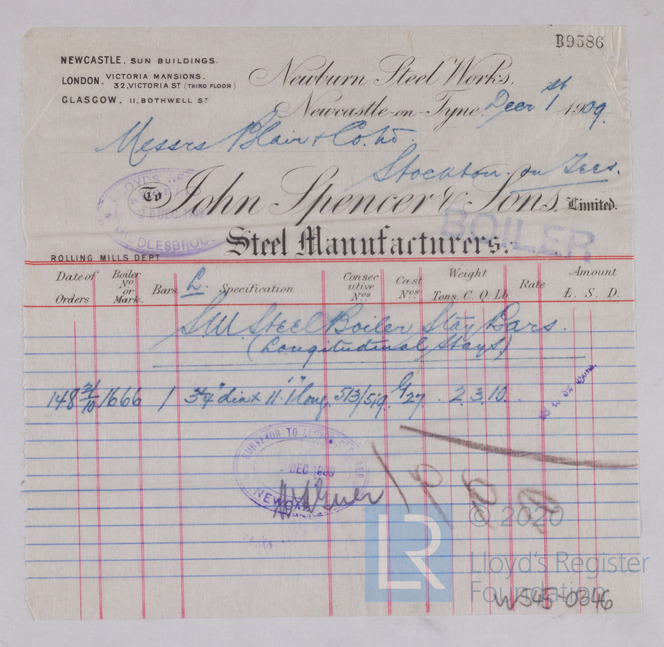 B9586
NEWCASTLE, SUN BUILDINGS.
LONDON, VICTORIA MANSIONS,
32, VICTORIA ST (THIRD FLOOR)
GLASGOW, 11, BOTHWELL ST
Newburn Steel Works.
Newcastle-on-Tyne. Decr 1st 1909.
Messrs Blair & Co. Ltd
Stockton on Tees.
To John Spencer & Sons, Limited.
LLOYD'S
MIDDLESBRO
BOILER
Steel Manufacturers.
ROLLING MILLS DEPT
Date of Orders
Boiler No or Mark.
Bars
L.
Specification
Consecutive Nos
Cast Nos
Weight
Tons. C. Q. Lb.
Rate
Amount
£. S. D.
S.M. Steel Boiler Stay Bars.
(Longitudinal Stays)
148 1666 1 11' 1" long. 513/519 G/27 2. 3. 10.
SURVEYOR TO
DEC 1909
NEWCA
LR
© 2020
Lloyd's Register
Foundation
W545-0346